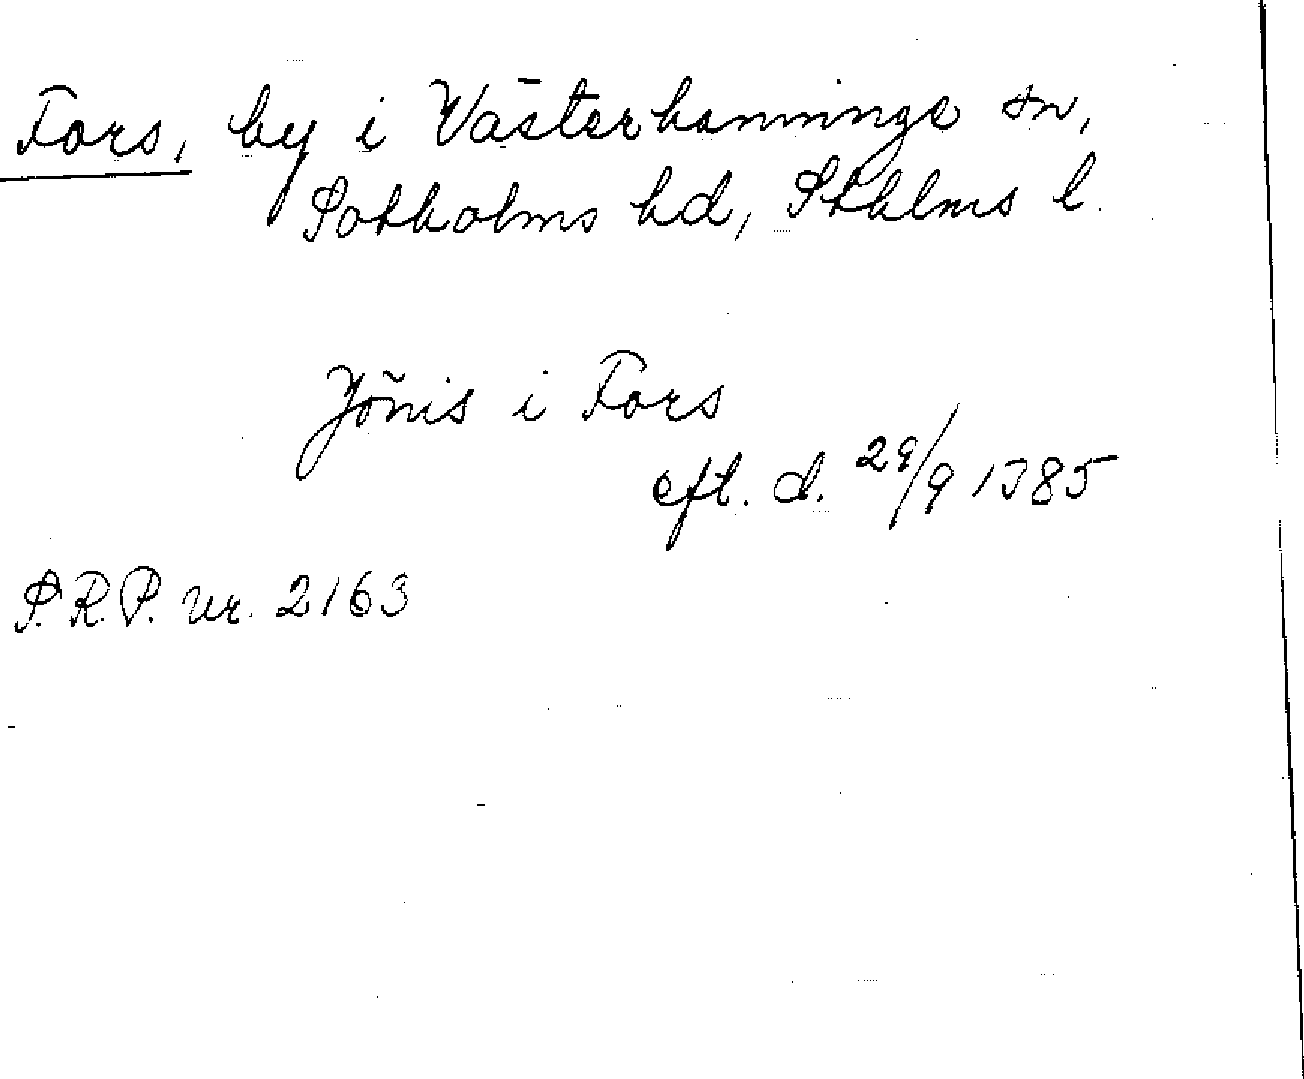 Fors, by i Västerhaninge sn,
Sotholms hd, Sthlms l.
Jõnis i Fors
eft. d. 29/9 1385
S.R.P. nr. 2163